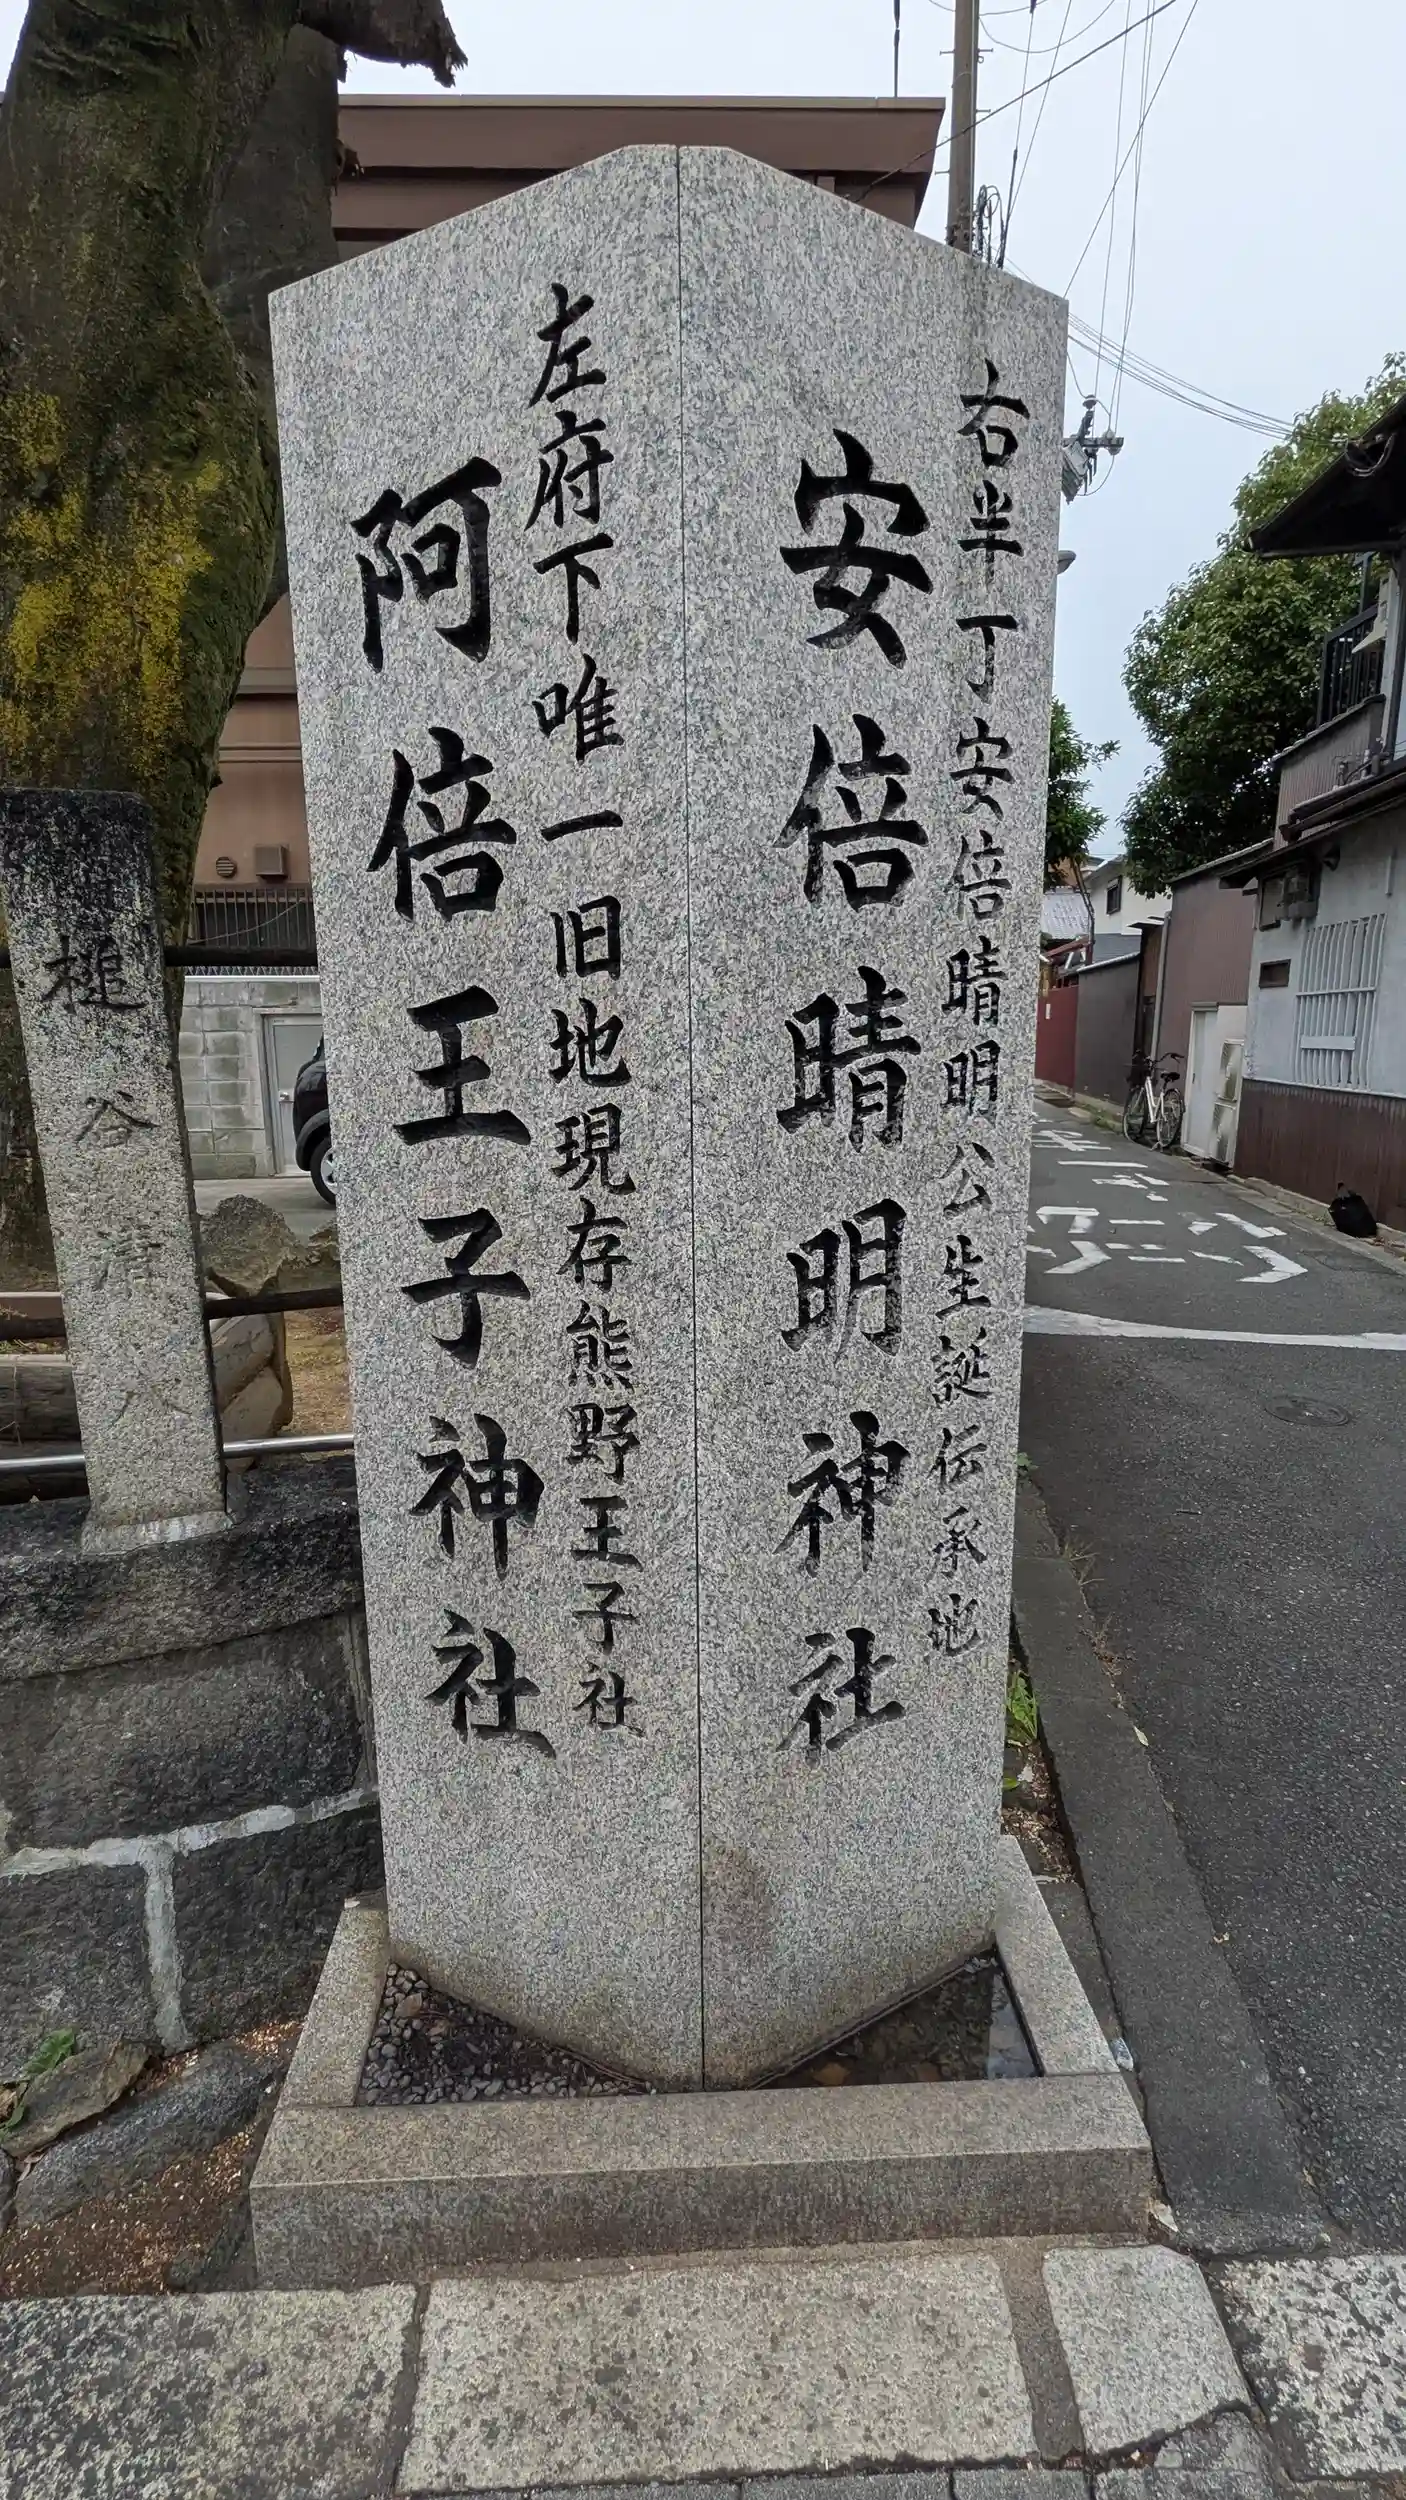 右半丁安倍晴明公生誕伝承地
安倍晴明神社
左府下唯一旧地現存熊野王子社
阿倍王子神社
槌谷清八